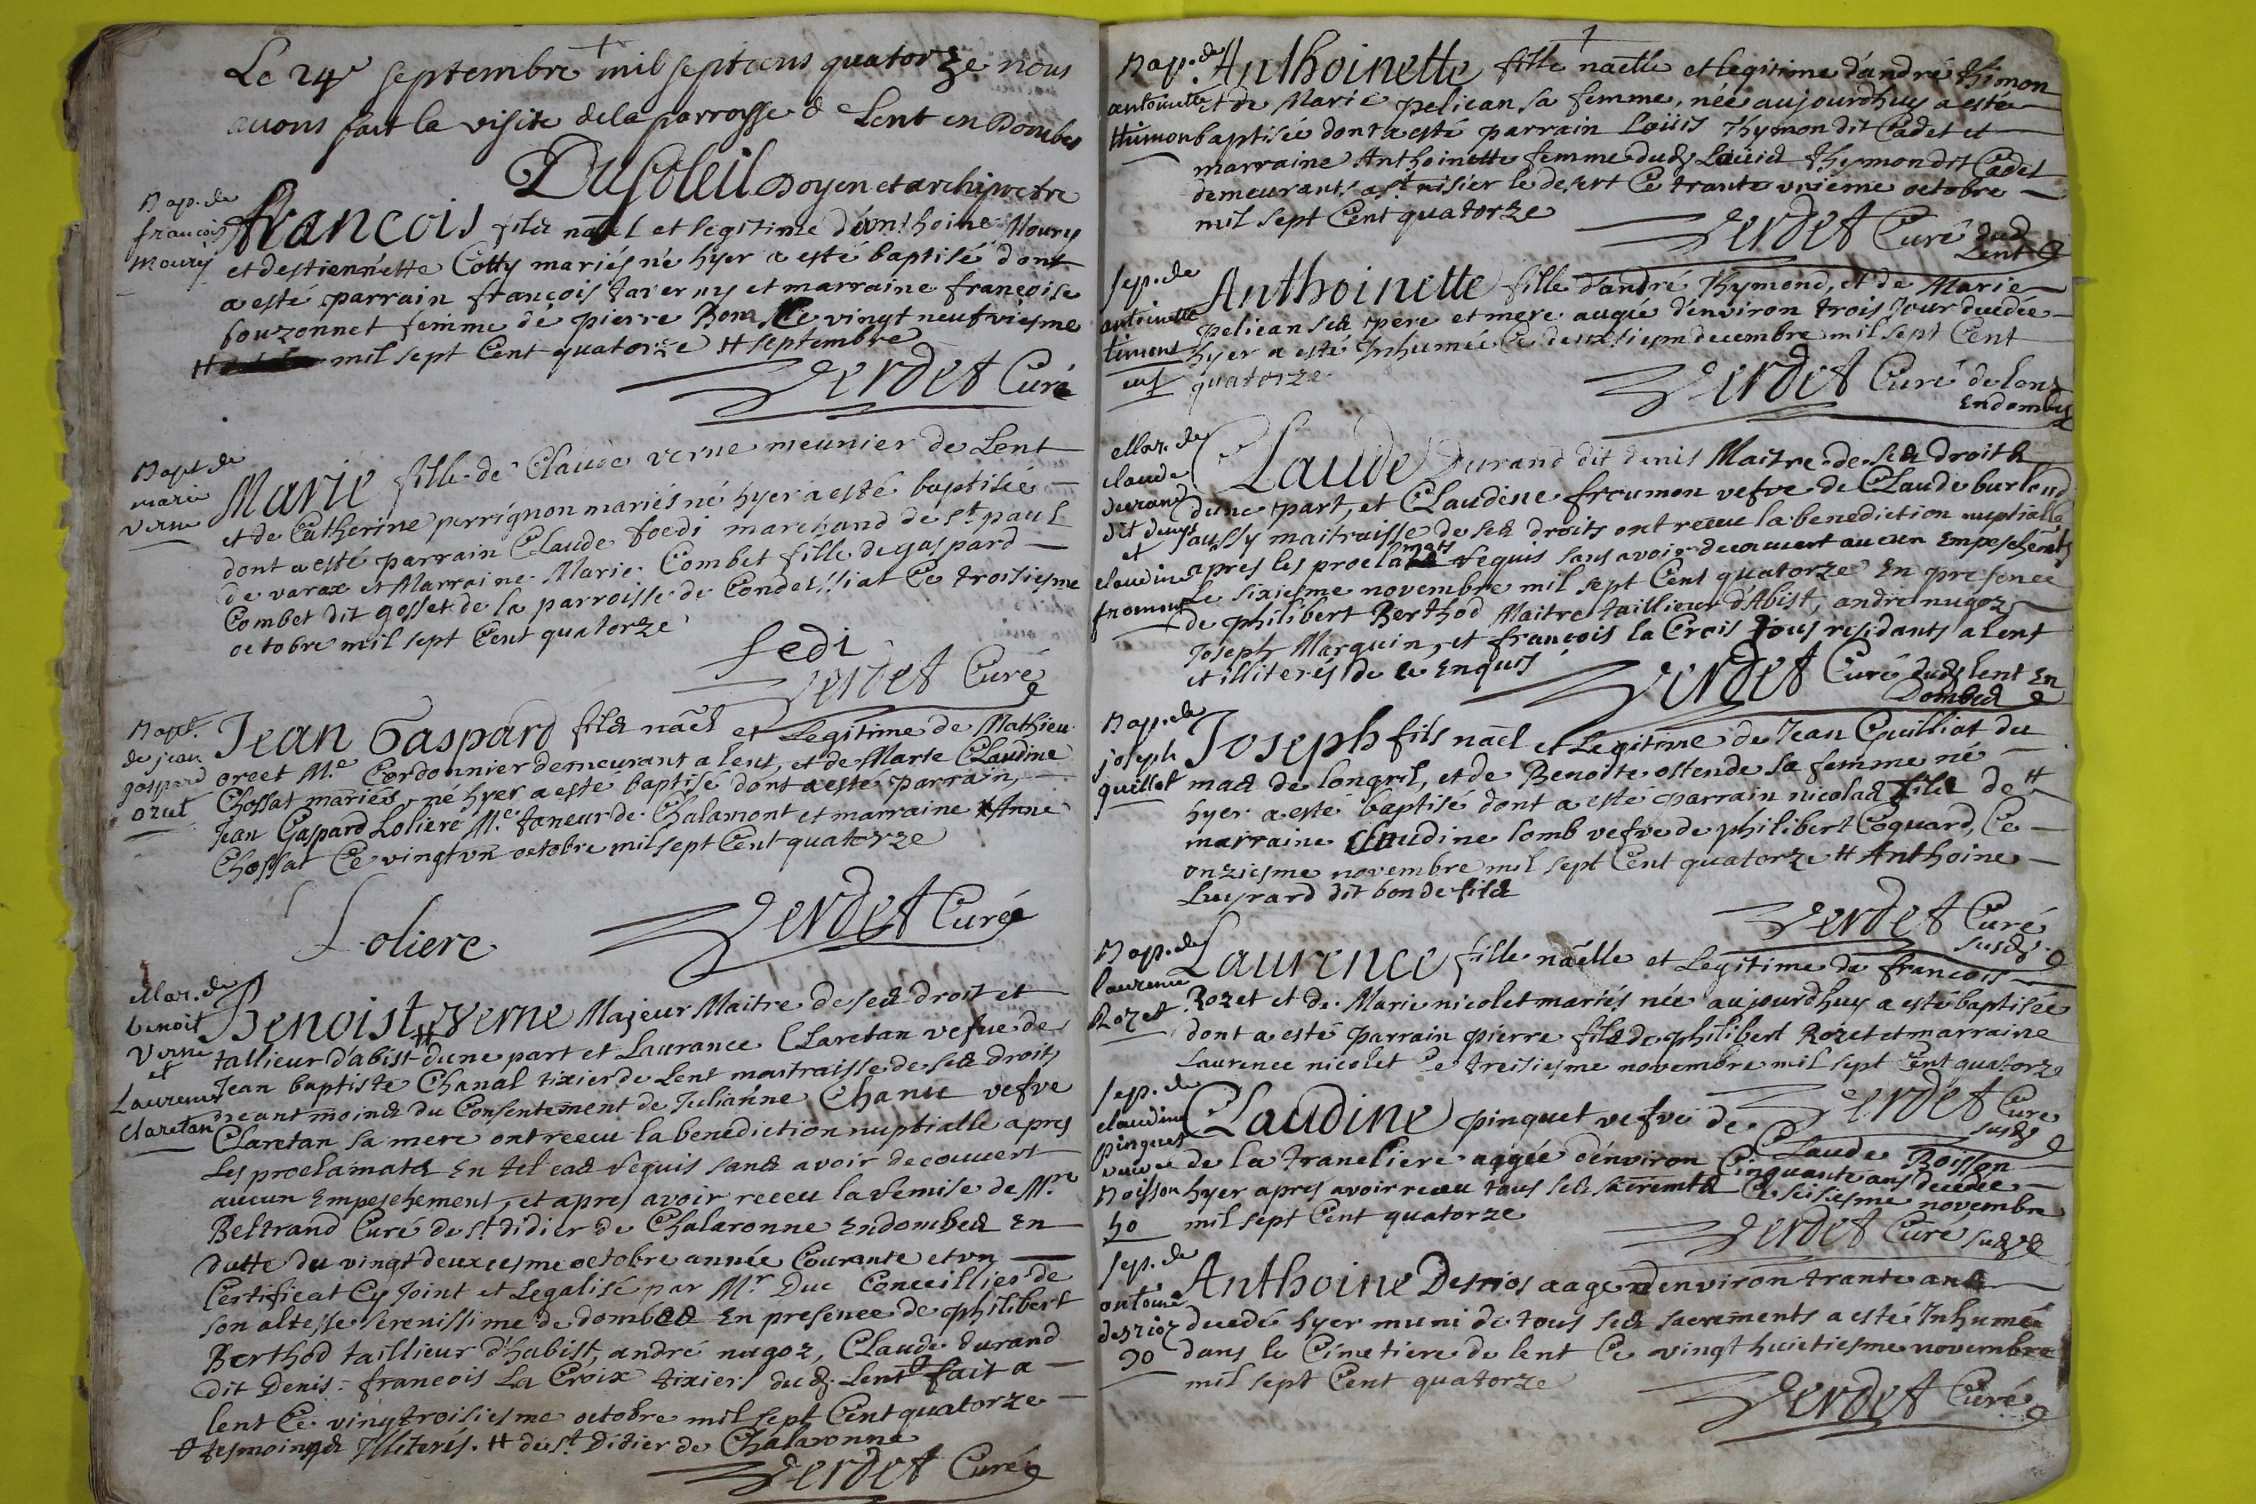 Le 24e septembre mil septcens quatorze nous
avons fait la visite de la parroisse de Lent en Dombes
Dusoleil Doyen et archiprebtre
Bap. de
francois
moury
francois fils nael et legitime d'anthoine Moury
et destiennette Cotty mariés né hyer a esté baptisé dont
a esté parrain françois taverny et marraine françoise
bouzonnet femme de pierre Bom Ce vingt neufviesme
# mil sept Cent quatorze # septembre
Verdet Curé
Bapt de
marie
verne
Marie fille de Claude verne meunier de Lent
et de Catherine perrignon mariés né hyer a esté baptisée
dont a esté parrain Claude foedi marchand de st paul
de varax et Marraine Marie Combet fille de gaspard
Combet dit gosset de la parroisse de Condeissiat Ce troisiesme
octobre mil sept Cent quatorze
fedi
Verdet Curé
Bapt.
de jean
gaspard
oret
Jean Gaspard fils nael et Legitime de Mathieu
oreet Me Cordonnier demeurant a lent, et de Marie Claudine
Chossat mariés né hyer a esté baptisé dont a esté parrain
Jean Gaspard Loliere Me taneur de Chalamont et marraine Anne
Chossat Ce vingt vn octobre mil sept Cent quatorze
Loliere
Verdet Curé
Mar. de
benoit
Verne
et
Laurence
Claretan
Benoist Verne Majeur Maitre de ses droit et
tallieur d'abist # dune part et Laurance Claretan vefue de
Jean baptiste Chanal tixier de Lent maitraisse de ses droits
neant moins du Consentement de Julianne Chanu vefve
Claretan sa mere ont receu la benediction nuptialle apres
Les proclamats En tel cas requis sans avoir decouvert
aucun Empeschement, et apres avoir receu la remise de Mre
Beltrand Curé de st didier de Chalaronne Endombes En
datte du vingt deuxiesme octobre année Courante et vn
Certificat Cy Joint et Legalisé par Mr Duc Conceillier de
son altesse serenissime de dombes En presence de philibert
Berthod taillieur d'habist, andré nugoz, Claude durand
dit Denis francois La Croix tixier dud. Lent fait a
lent Ce vingtroisiesme octobre mil sept Cent quatorze
tesmoings Illiterés. # de st Didier de Chalaronne
Verdet Curé
Bap. de
antoinette
thimon
Anthoinette fille naelle et legitime d'andré thimon
et de Marie pelican sa femme, née aujourdhuy a esté
baptisée dont a esté parrain Loüis thymon dit Cadet et
marraine Anthoinette femme dud. Loüis thymon dit Cadet
demeurants a st nisier le desert Ce trante vnieme octobre
mil sept Cent quatorze
Verdet Curé dud
Lent
Sep. de
antoinette
timont
Anthoinette fille d'andré thymond, et de Marie
pelican ses pere et mere augée d'environ trois Jour decedée
hyer a esté Inhumée Ce deuxsiem decembre mil sept Cent
quatorze
Verdet Curé de Lent
Endombes
Mar. de
claude
durand
dit denys
et
claudine
fromont
Claude Durand dit denis Maitre de ses droits
dune part, et Claudine froumon vefve de Claude burlond
aussy maitraisse de ses droits ont receu la benediction nuptialle
apres les proclamats requis sans avoir decouvert aucun Empeschements
Le sixiesme novembre mil sept Cent quatorze En presence
de philibert Berthod Maitre taillieur d'Abist, andre nugoz
Joseph Marguin, et françois la Crois tous residants a lent
et illiterés de ce Enquis
Verdet Curé dud. lent En
Dombes
Bap. de
joseph
guillot
Joseph fils nael et Legitime de Jean Cuilliat du
mas de longril, et de Benoite ostende sa femme né
hyer a esté baptisé dont a esté parrain nicolas fils de #
marraine Claudine lomb vefve de philibert Coquard, Ce
onziesme novembre mil sept Cent quatorze # Anthoine
Luyrard dit bon de fils
Verdet Curé
susd.
Bap. de
laurence
Rozet
Laurence fille naelle et Legitime de francois
Rozet et de Marie nicolet mariés née aujourdhuy a esté baptisée
dont a esté parrain pierre fils de philibert Rozet et marraine
Laurence nicolet Ce treisiesme novembre mil sept Cent quatorze
Verdet Cure
susd.
Sep. de
claudine
pinquet
veuve
Boisson
50
Claudine pinquet vefve de Claude Boisson
de la traneliere aagée d'environ Cinquante ans decedée
hyer apres avoir receu tous ses sacremts Ce seisiesme novembre
mil sept Cent quatorze
Verdet Curé susd.
Sep. de
antoine
desrioz
30
Anthoine Desrios aage denviron trante ans
decedé hyer muni de tous ses sacrements a esté Inhumé
dans le Cimetiere de lent Ce vingt huictiesme novembre
mil sept Cent quatorze
Verdet Curé